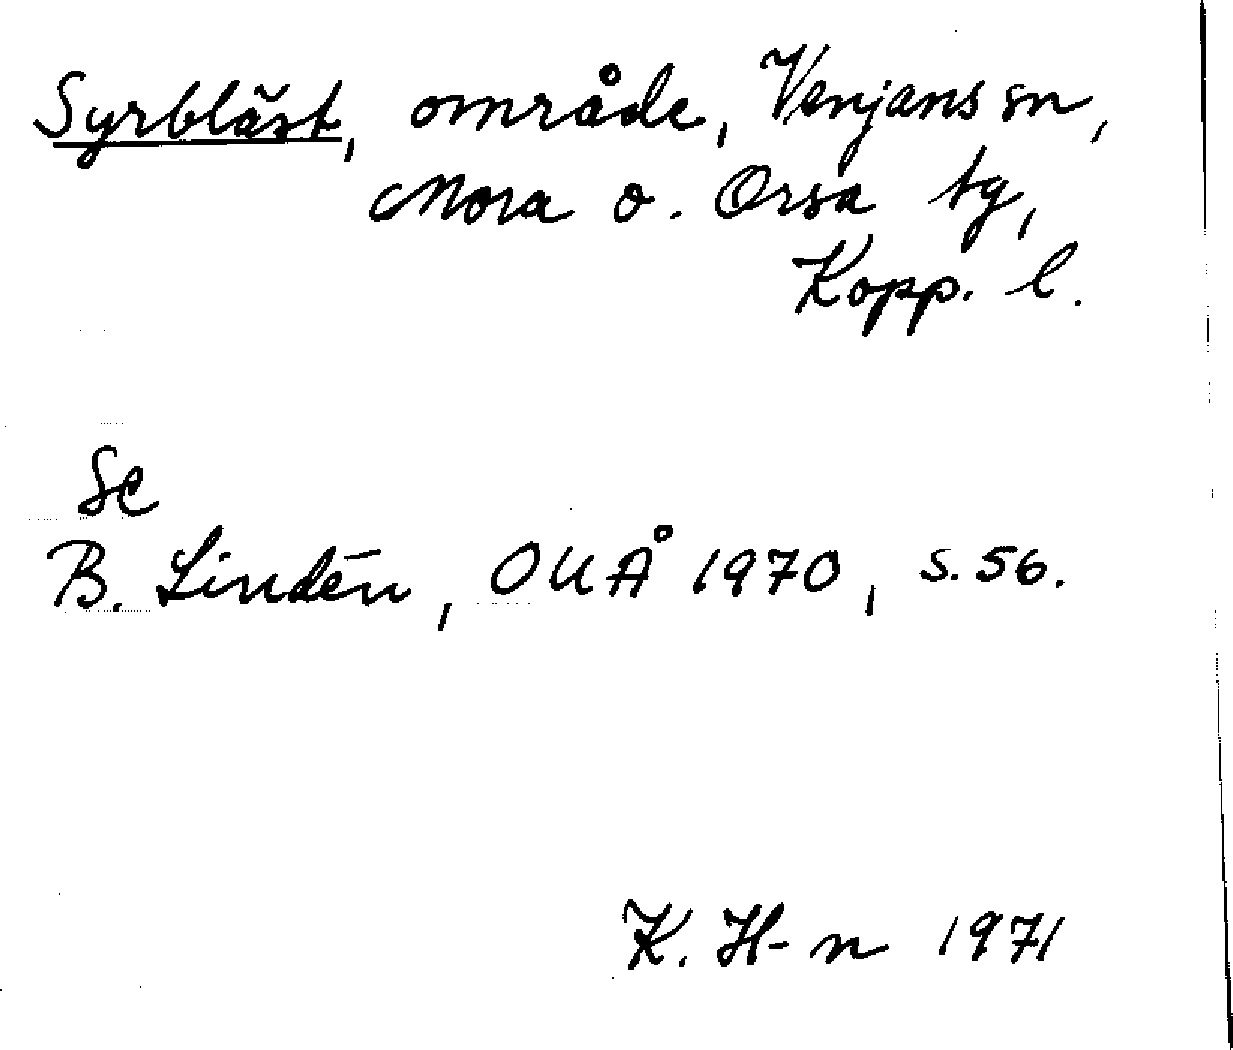 Syrbläst, område, Venjans sn,
Mora o. Orsa tg,
Kopp. l.
Se
B. Lindén, OUÅ 1970, s. 56.
K. H-n 1971